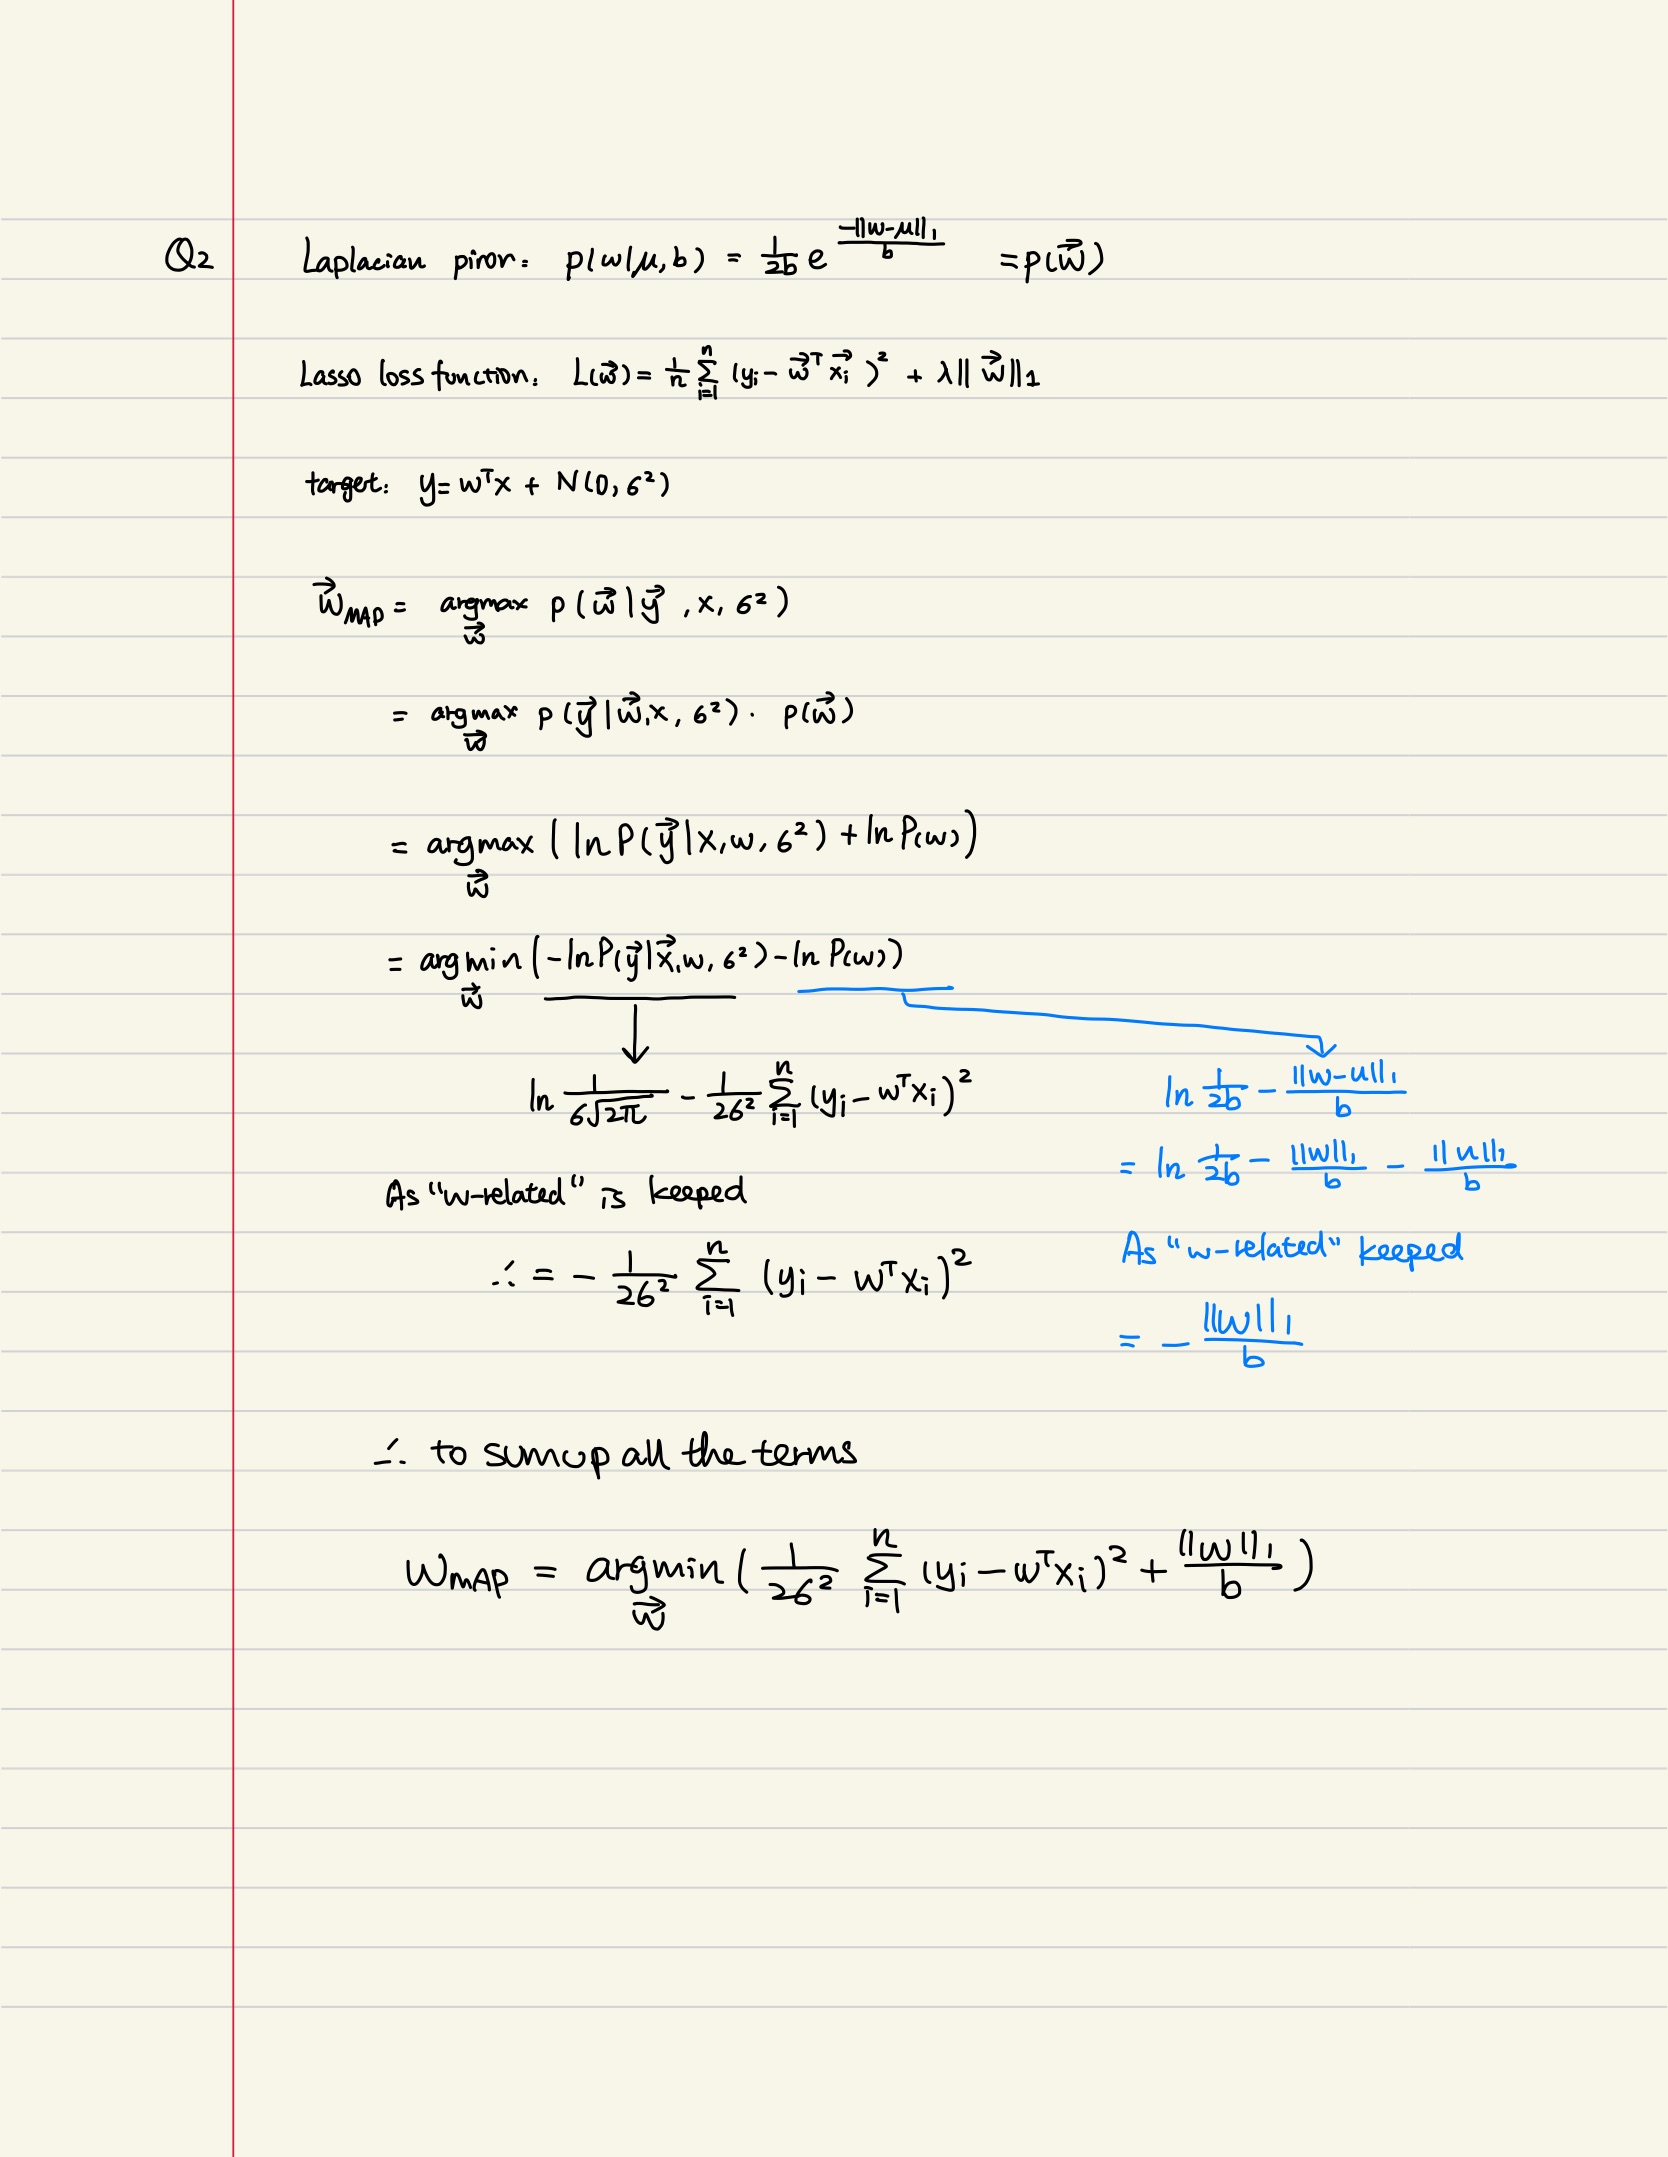 Q2 Laplacian piror: p(w|μ,b) = 1/2b e^(-||w-μ||₁/b) = p(w⃗)
Lasso loss function: L(w⃗) = 1/n Σ_{i=1}^{n} (yi - w⃗ᵀ x⃗i)² + λ|| w⃗ ||1
target: y = wᵀx + N(0, 6²)
w⃗_MAP = argmax_w⃗ p(w⃗ | y⃗, x, 6²)
= argmax_w⃗ p(y⃗ | w⃗, x, 6²) · p(w⃗)
= argmax_w⃗ (ln P(y⃗ | x, w, 6²) + ln P(w))
= argmin_w⃗ (-ln P(y⃗ | x⃗, w, 6²) - ln P(w))
ln 1/(6√2π) - 1/26² Σ_{i=1}^{n} (yi - wᵀxi)²
As "w-related" is keeped
∴ = - 1/26² Σ_{i=1}^{n} (yi - wᵀxi)²
ln 1/2b - ||w-u||₁/b
= ln 1/2b - ||w||₁/b - ||u||₁/b
As "w-related" keeped
= - ||w||₁/b
∴ to sum up all the terms
w_MAP = argmin_w⃗ (1/26² Σ_{i=1}^{n} (yi - wᵀxi)² + ||w||₁/b)